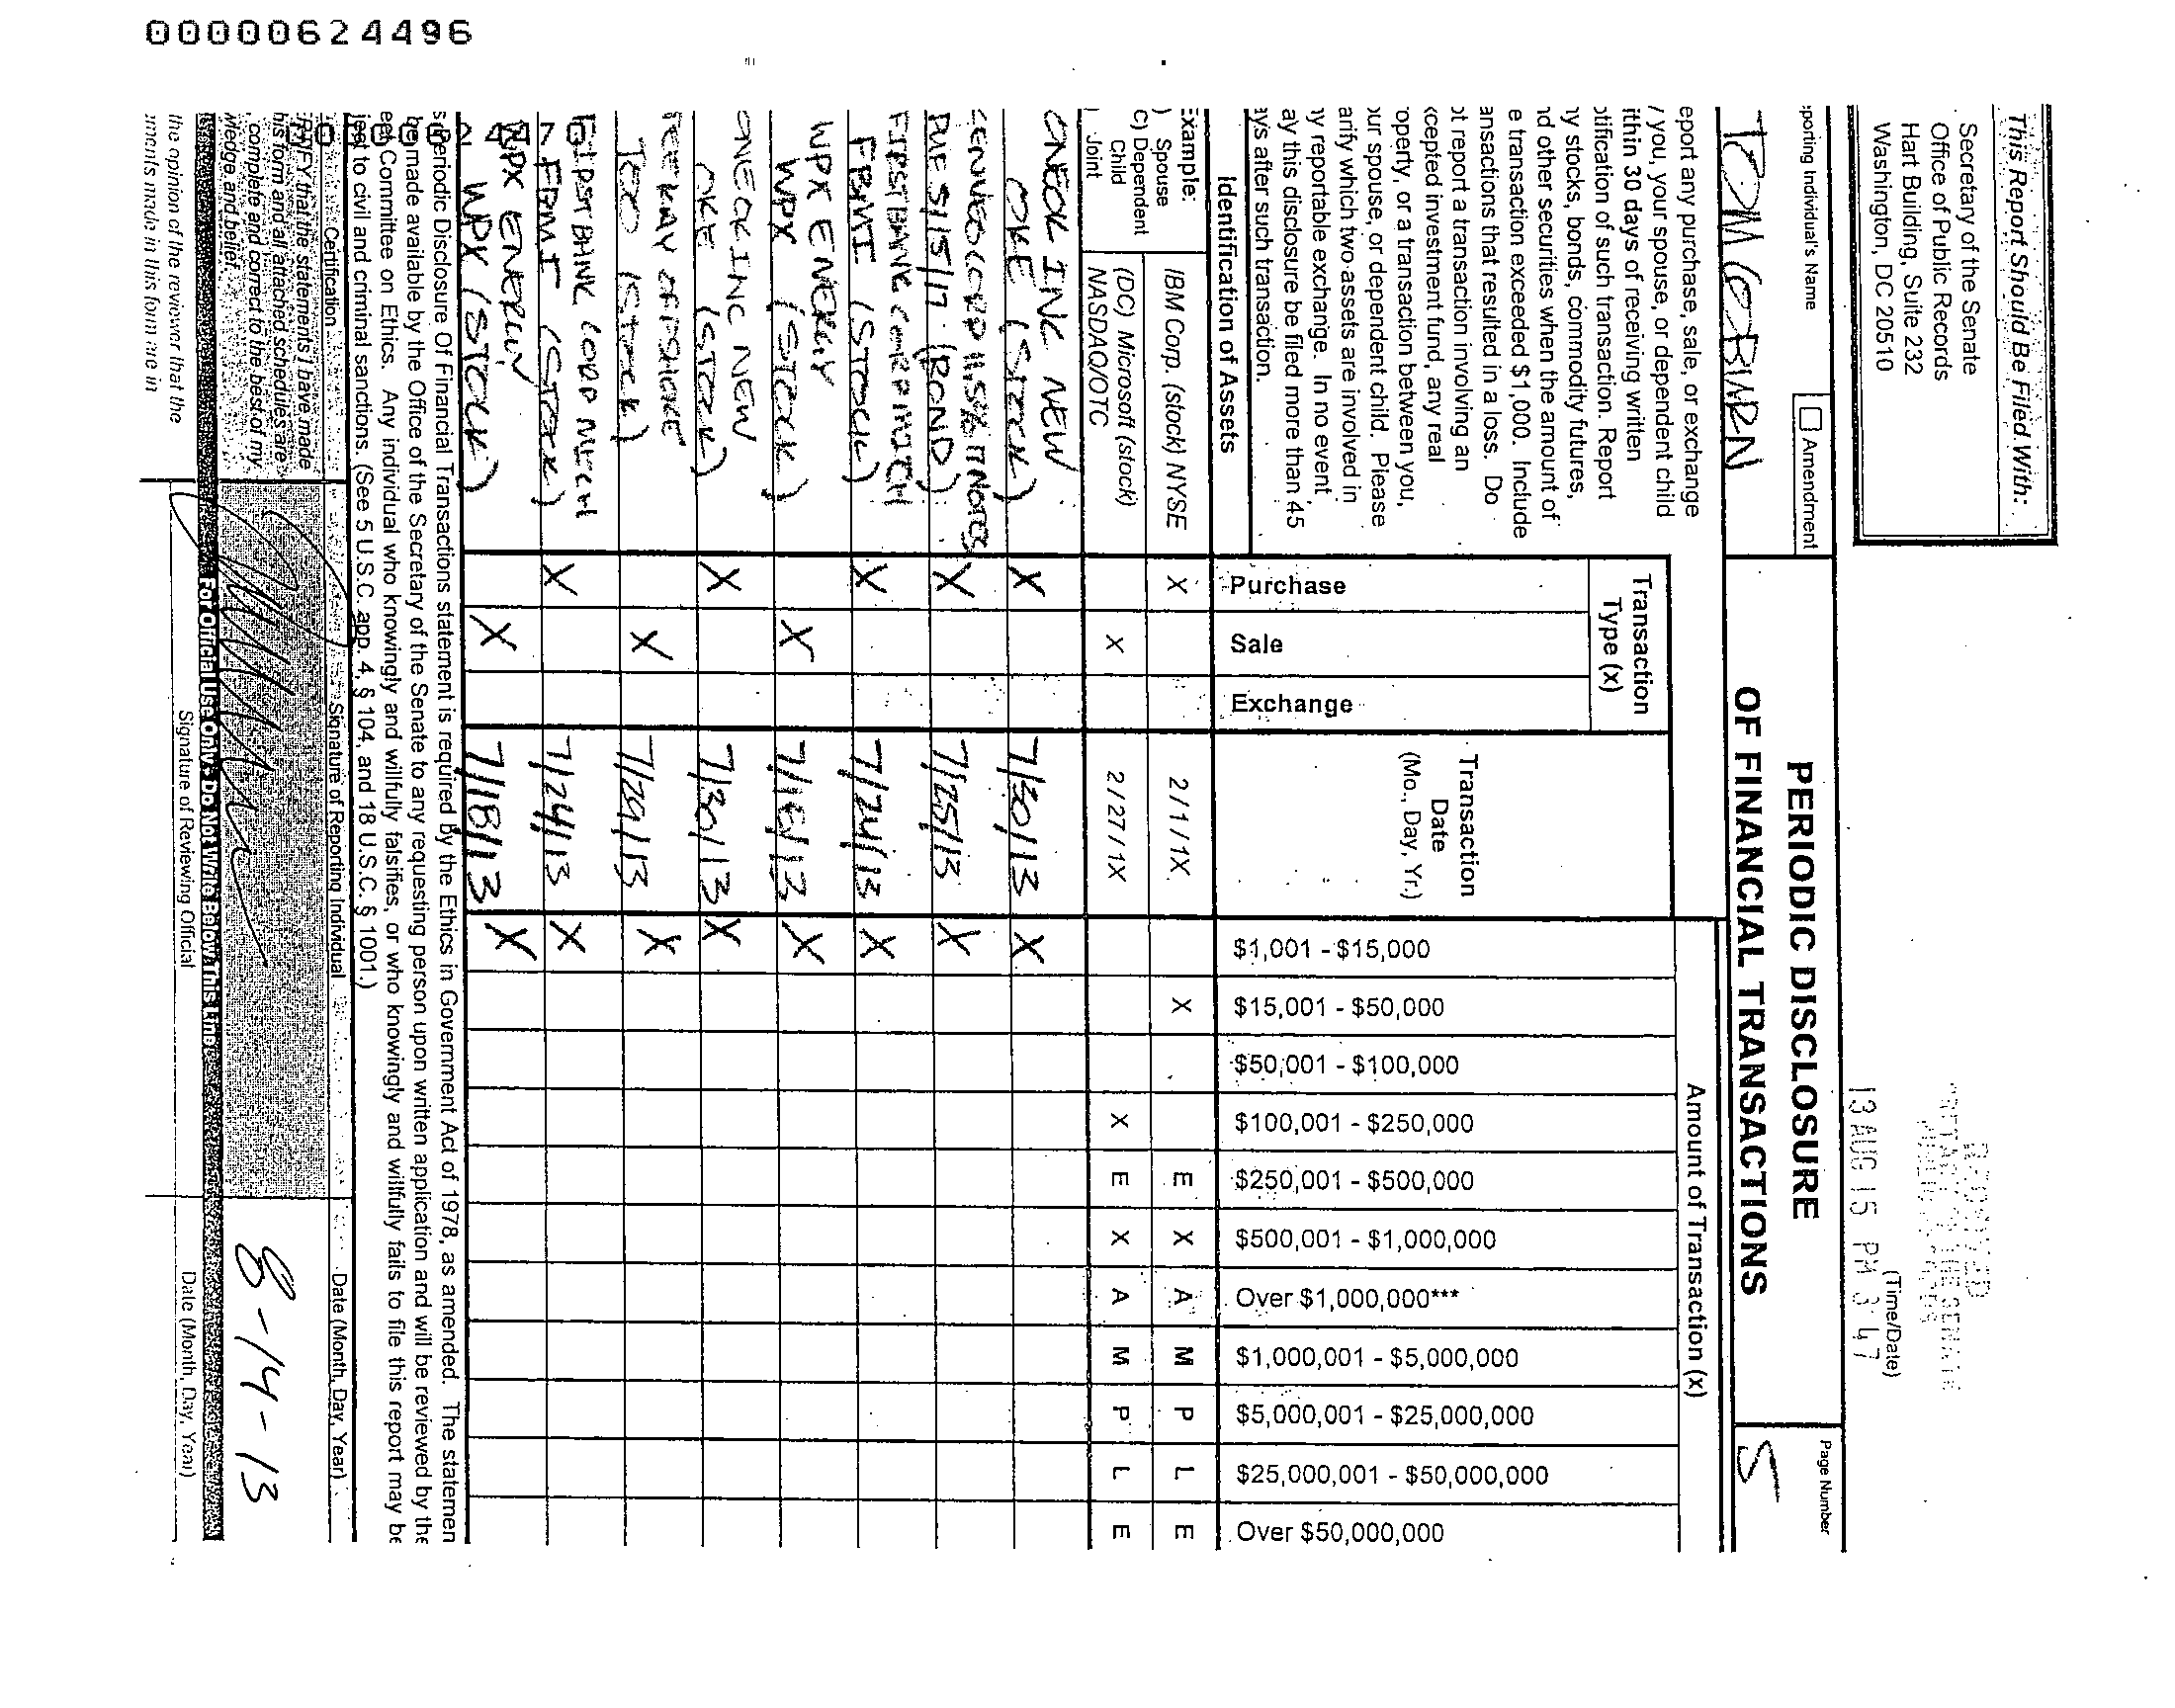 00000624496
This Report Should Be Filed With:
Secretary of the Senate
Office of Public Records
Hart Building, Suite 232
Washington, DC 20510
(Time/Date)
13 AUG 15 PM 3:47
porting Individual's Name
Amendment
TOM COBURN
PERIODIC DISCLOSURE
OF FINANCIAL TRANSACTIONS
Page Number
5
eport any purchase, sale, or exchange
you, your spouse, or dependent child
ithin 30 days of receiving written
otification of such transaction. Report
ny stocks, bonds, commodity futures,
nd other securities when the amount of
e transaction exceeded $1,000. Include
ansactions that resulted in a loss. Do
ot report a transaction involving an
xcepted investment fund, any real
operty, or a transaction between you,
our spouse, or dependent child. Please
arify which two assets are involved in
ny reportable exchange. In no event
ay this disclosure be filed more than 45
ays after such transaction.
Identification of Assets
Transaction
Type (x)
Purchase
Sale
Exchange
Transaction
Date
(Mo., Day, Yr.)
Amount of Transaction (x)
$1,001 - $15,000
$15,001 - $50,000
$50,001 - $100,000
$100,001 - $250,000
$250,001 - $500,000
$500,001 - $1,000,000
Over $1,000,000***
$1,000,001 - $5,000,000
$5,000,001 - $25,000,000
$25,000,001 - $50,000,000
Over $50,000,000
Example:
) Spouse
C) Dependent
Child
) Joint
IBM Corp. (stock) NYSE X 2/1/1X X E X A M P L E
(DC) Microsoft (stock)
NASDAQ/OTC X 2/27/1X X E X A M P L E
ONEOK INC NEW
OKE (STOCK) X 7/30/13 X
11.5%
DUE 5/15/17 (BOND) X 7/25/13 X
FIRSTBANK CORP MICH
FBMI (STOCK) X 7/24/13 X
WPX ENERGY
WPX (STOCK) X 7/18/13 X
ONEOK INC NEW
OKE (STOCK) X 7/30/13 X
TEEKAY OFFSHORE
TOO (STOCK) X 7/29/13 X
FIRSTBANK CORP MICH
FBMI (STOCK) X 7/24/13 X
WPX ENERGY
WPX (STOCK) X 7/18/13 X
s Periodic Disclosure Of Financial Transactions statement is required by the Ethics in Government Act of 1978, as amended. The statemen
be made available by the Office of the Secretary of the Senate to any requesting person upon written application and will be reviewed by the
ect Committee on Ethics. Any individual who knowingly and willfully falsifies, or who knowingly and willfully fails to file this report may be
ject to civil and criminal sanctions. (See 5 U.S.C. app. 4, § 104, and 18 U.S.C. § 1001.)
Certification
Signature of Reporting Individual
Date (Month, Day, Year)
TIFY that the statements I have made
his form and all attached schedules are
, complete and correct to the best of my
wledge and belief.
8-14-13
For Official Use Only - Do Not Write Below This Line
the opinion of the reviewer that the
ements made in this form are in
Signature of Reviewing Official
Date (Month, Day, Year)